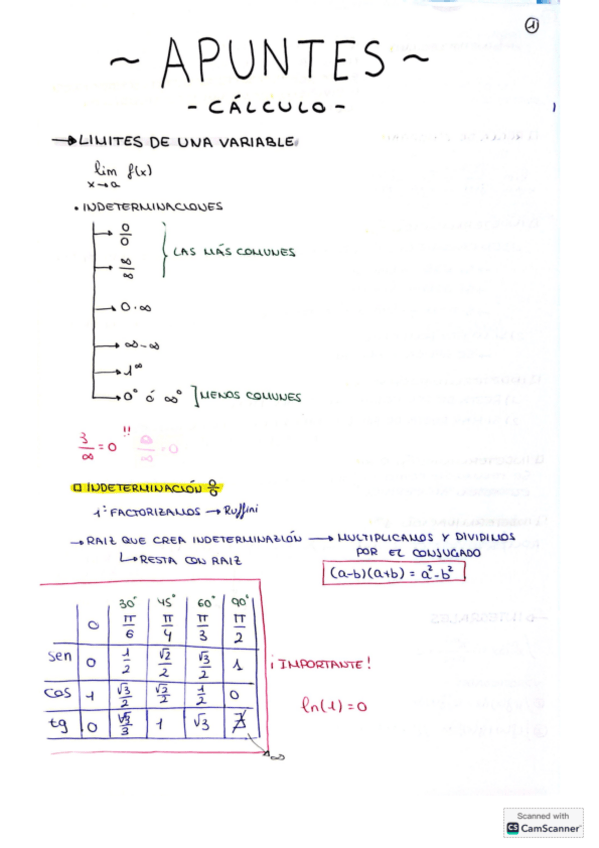 1
~ APUNTES ~
- CÁLCULO -
→ LIMITES DE UNA VARIABLE
lim f(x)
x→a
• INDETERMINACIONES
→ 0/0
→ ∞/∞
} LAS MÁS COMUNES
→ 0·∞
→ ∞-∞
→ 1^∞
→ 0° ó ∞° ] MENOS COMUNES
3/∞ = 0 !! 0/∞ = 0
□ INDETERMINACIÓN 0/0
1º: FACTORIZAMOS → Ruffini
→ RAIZ QUE CREA INDETERMINAZIÓN → MULTIPLICAMOS Y DIVIDIMOS
POR EL CONJUGADO
↳ RESTA CON RAIZ
(a-b)(a+b) = a²-b²
30° 45° 60° 90°
0 π/6 π/4 π/3 π/2
sen 0 1/2 √2/2 √3/2 1
cos 1 √3/2 √2/2 1/2 0
tg 0 √3/3 1 √3 ∄
→ ∞
¡IMPORTANTE!
ln(1)=0
Scanned with
CS CamScanner